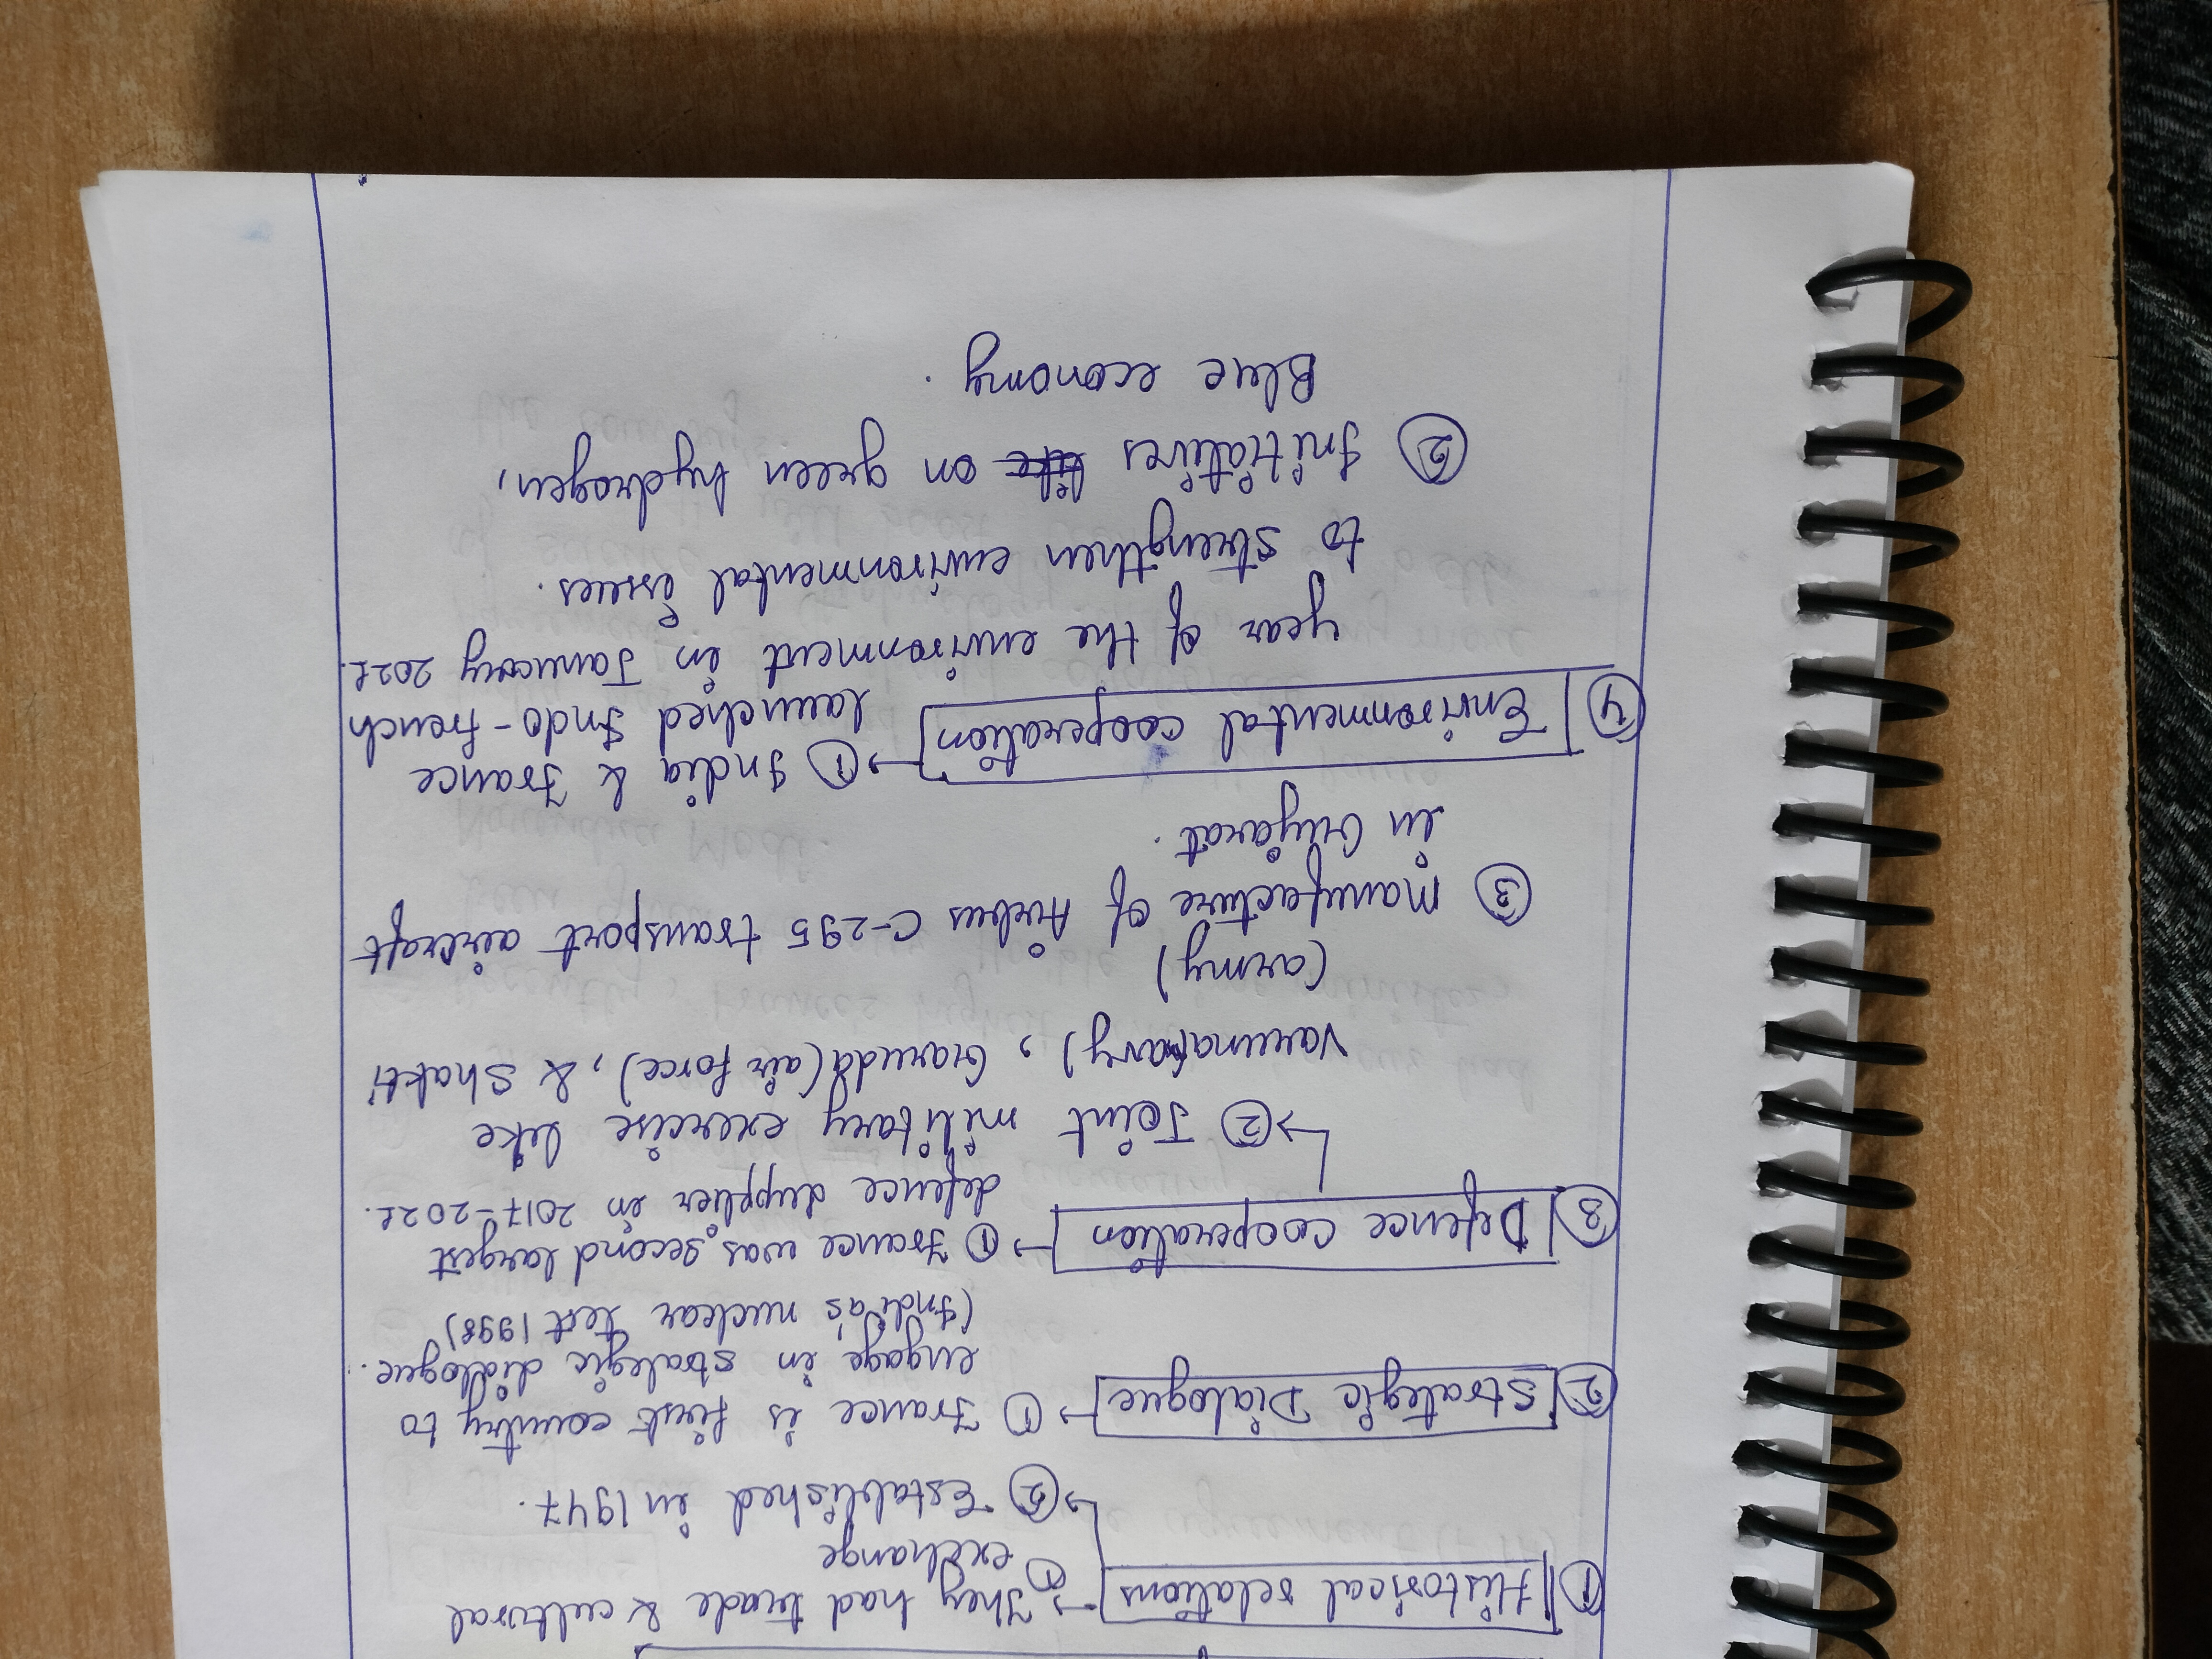 ① Historical relations → ① They had trade & cultural
exchange
→ ② Established in 1947.
② Strategic Dialogue → ① France is first country to
engage in strategic dialogue.
(India's nuclear test 1998)
③ Defence cooperation → ① France was second largest
defence supplier in 2017-2021.
→ ② Joint military exercise like
Varuna(navy), Garuda(air force), & Shakti
(army)
③ Manufacture of Airbus C-295 transport aircraft
in Gujarat.
④ Environmental cooperation → ① India & France
launched Indo-french
year of the environment in January 2021.
to strengthen environmental issues.
② Initiatives like on green hydrogen,
Blue economy.